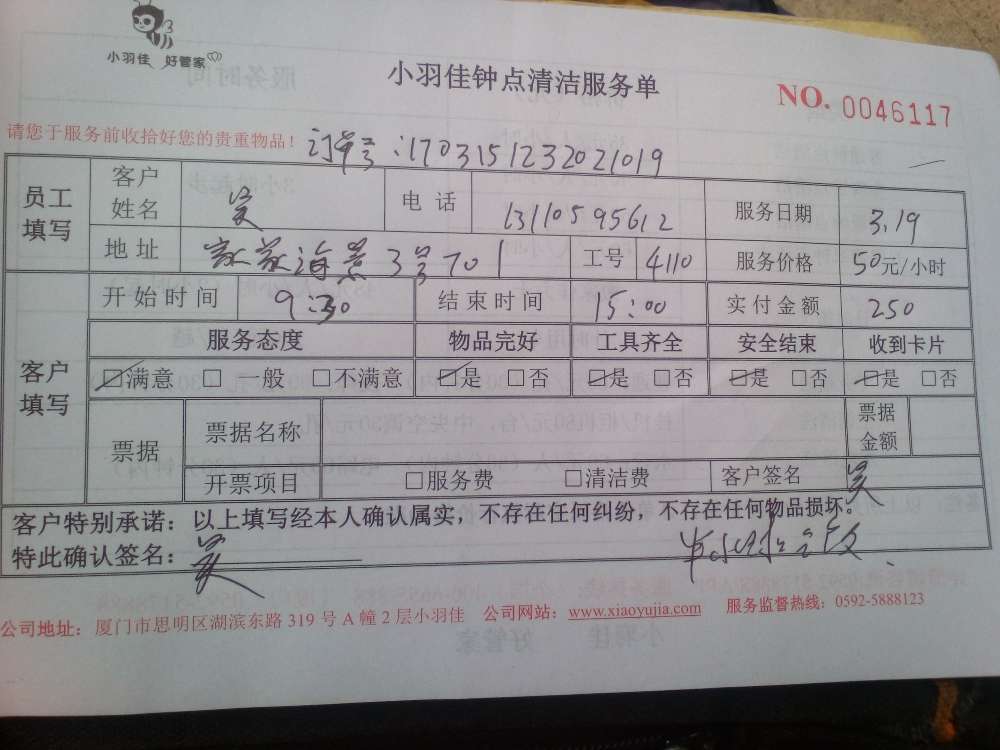 小羽佳 好管家
小羽佳钟点清洁服务单
NO. 0046117
请您于服务前收拾好您的贵重物品！ 订单号：1703151232021019
员工填写 客户姓名 电话 13110595612 服务日期 3.19
地址 海景3号701 工号 4110 服务价格 50元/小时
开始时间 9:30 结束时间 15:00 实付金额 250
客户填写 服务态度 物品完好 工具齐全 安全结束 收到卡片
☑满意 □一般 □不满意 ☑是 □否 ☑是 □否 ☑是 □否 ☑是 □否
票据 票据名称 票据金额
开票项目 □服务费 □清洁费 客户签名
客户特别承诺：以上填写经本人确认属实，不存在任何纠纷，不存在任何物品损坏。
特此确认签名：
公司地址：厦门市思明区湖滨东路319号A幢2层小羽佳 公司网站：www.xiaoyujia.com 服务监督热线：0592-5888123